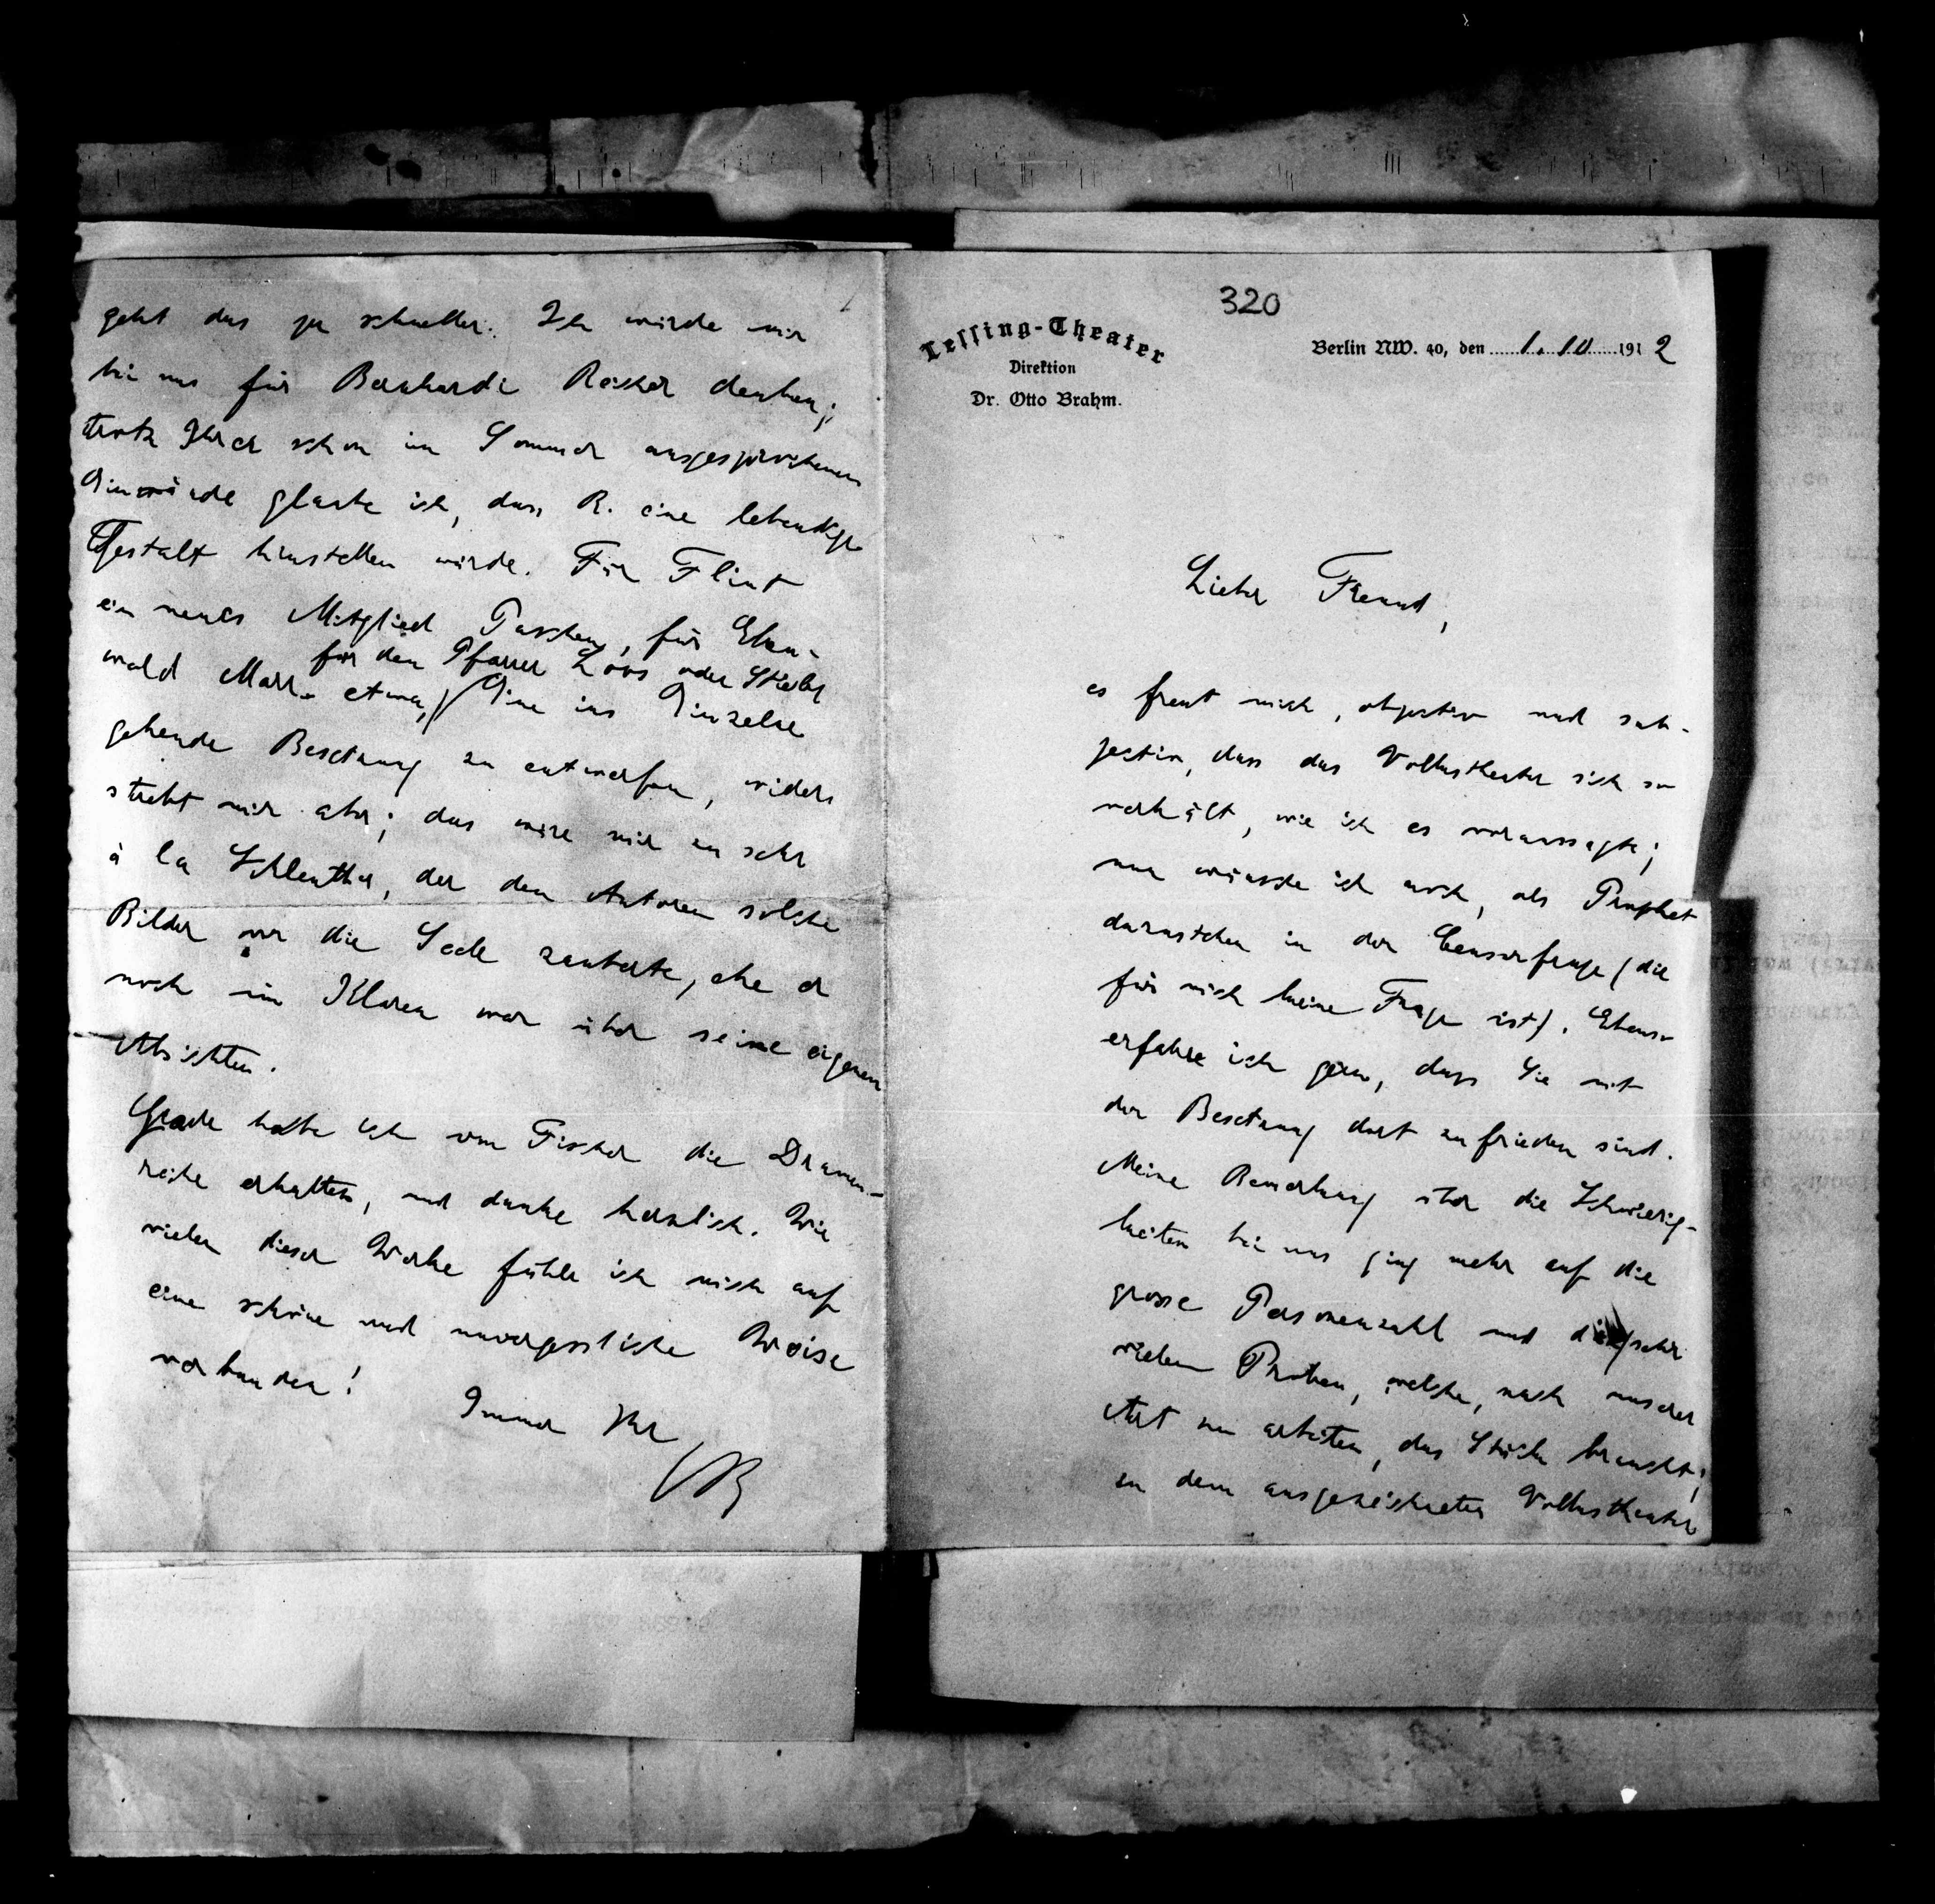 320
Lessing-Theater
Direktion
Dr. Otto Brahm.
Berlin NW. 40, den 1. 10 1912
Lieber Freund,
es freut mich, objectiv und sub-
jectiv, dass das Volkstheater sich so
verhält, wie ich es voraussagte;
nun wünsche ich auch, als Prophet
dazustehen in der Censurfrage (die
für mich keine Frage ist). Ebenso
erfahre ich gern, dass Sie mit
der Besetzung dort zufrieden sind.
Meine Bemerkung über die Schwierig-
keiten bei uns ging mehr auf die
grosse Personenzahl und die sehr
vielen Proben, welche, nach unserer
Art zu arbeiten, das Stück braucht;
in dem ausgezeichneten Volkstheater
geht das ja schneller. Ich würde mir
bei uns für Bernhardi Reicher denken;
trotz Ihrer schon im Sommer ausgesprochenen
Einwände glaube ich, dass R. eine lebendige
Gestalt hinstellen würde. Für Flint
ein neues Mitglied, für Eben-
für den Pfarrer Loos oder Stieler
wald Marr etwa, Eine ins Einzelne
gehende Besetzung zu entwerfen, wider-
strebt mir aber; das wäre mir zu sehr
à la Schlenther, der den Autoren solche
Bilder vor die Seele zauberte, ehe er
noch im Klaren war über seine eigenen
Absichten.
Grade habe ich von Fischer die Dramen-
reihe erhalten, und danke herzlich. Wie
vielen dieser Werke fühle ich mich auf
eine schöne und unvergessliche Weise
verbunden!
Immer Ihr
OB